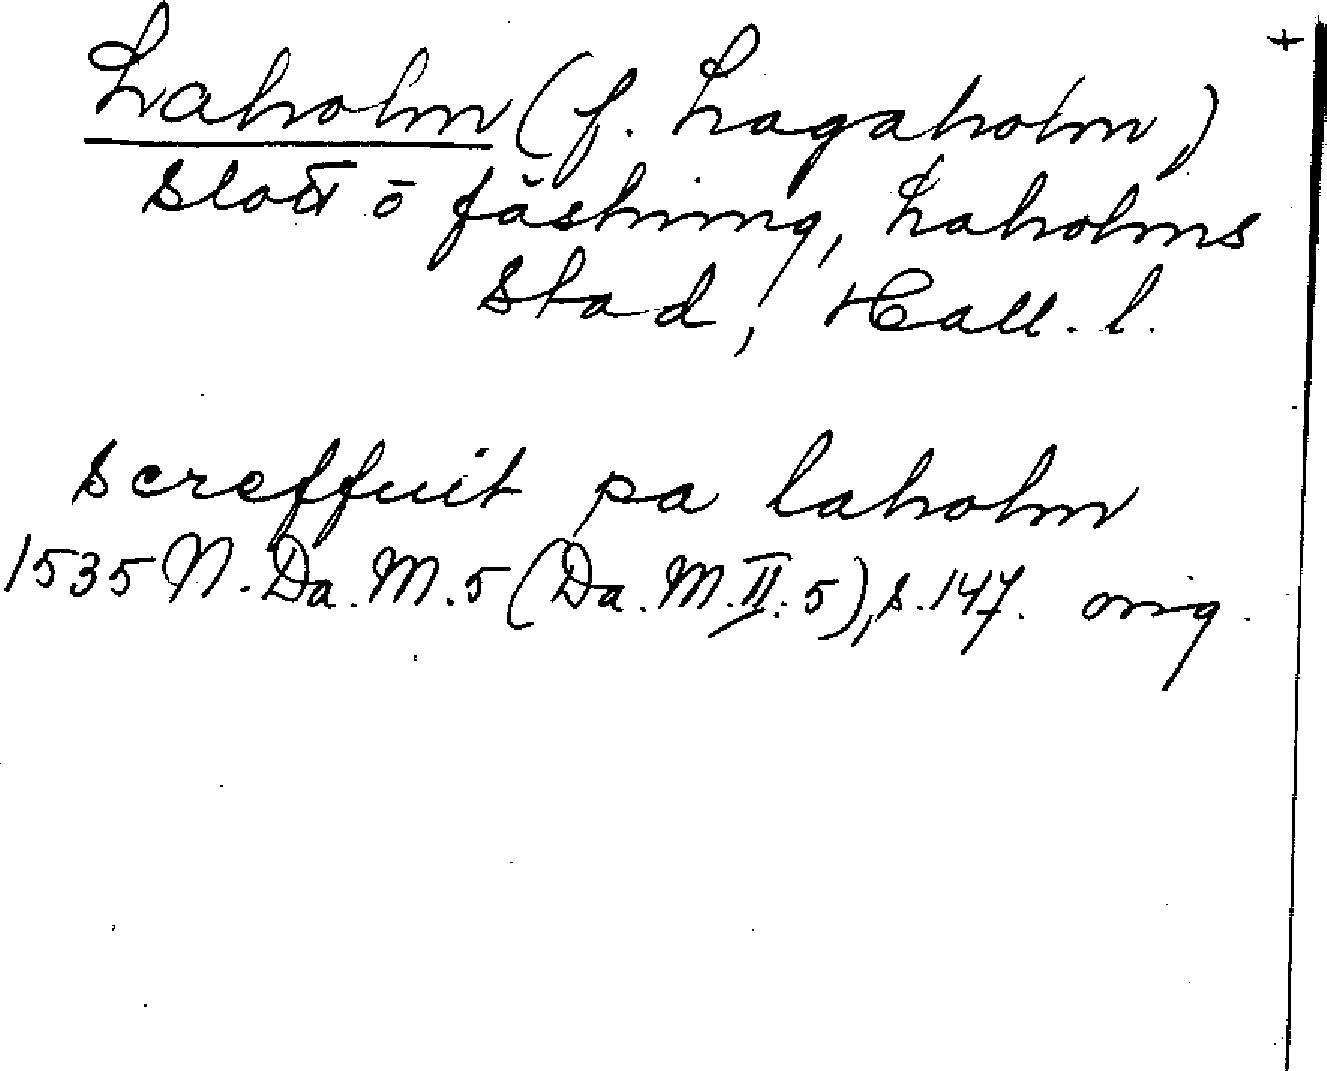 Laholm (f. Lagaholm) +
slott o fästning, Laholms
stad, Hall. l.
screffuit pa laholm
1535 N. Da. M. 5 (Da. M. II: 5), s. 147. orig.